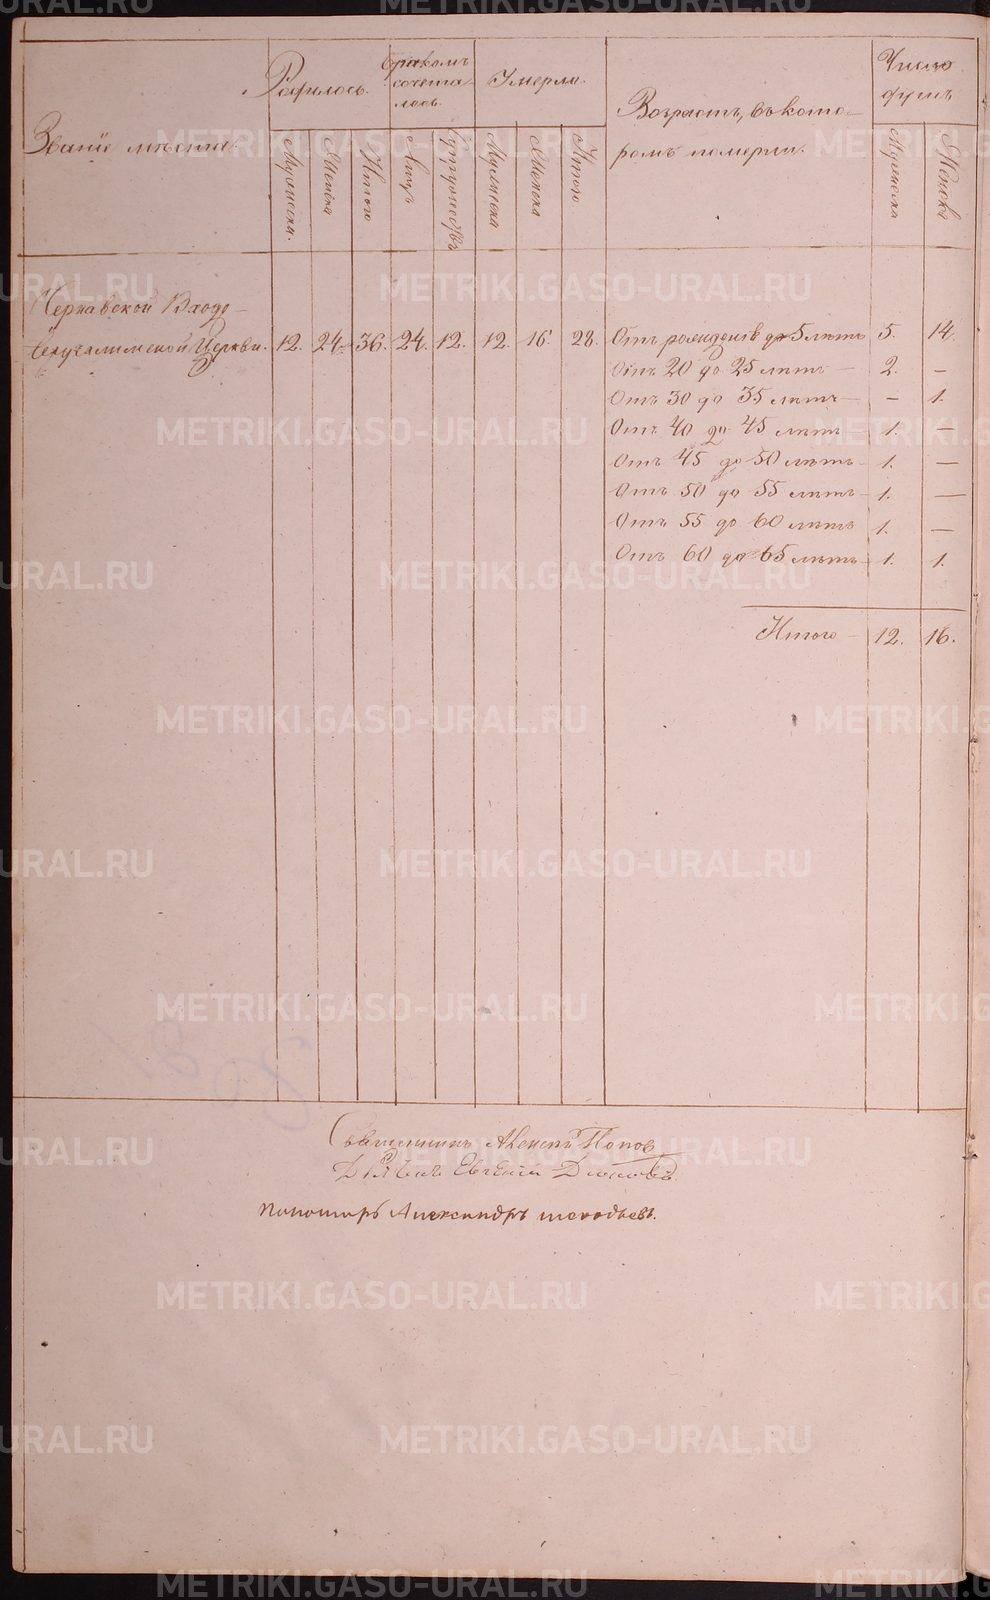 METRIKI.GASO-URAL.RU
Званіе мѣста.
Родилось.
бракомъ
сочета-
лось.
Умерли.
Возрастъ, въ кото-
ромъ померли.
Число
душъ
Мужеска.
Женска
Итого
Лицъ
Супружествъ
Мужеска
Женска
Итого
Мужеска
Женска
Чернавской Входо-
Іерусалимской Церкви. 12. 24. 36. 24. 12. 12. 16. 28. Отъ рожденія до 5 лѣтъ 5. 14.
Отъ 20 до 25 лѣтъ — 2. —
Отъ 30 до 35 лѣтъ — — 1.
Отъ 40 до 45 лѣтъ — 1. —
Отъ 45 до 50 лѣтъ — 1. —
Отъ 50 до 55 лѣтъ — 1. —
Отъ 55 до 60 лѣтъ 1. —
Отъ 60 до 65 лѣтъ — 1. 1.
Итого — 12. 16.
Священникъ Алексій Поповъ
Дьячекъ Евгеній
Пономарь Александръ